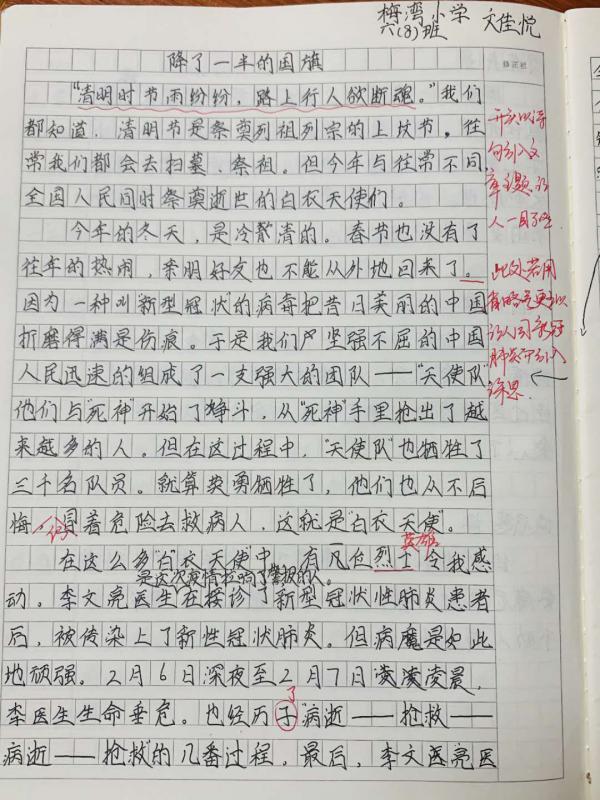 梅湾小学
六(8)班 文佳悦
降了一半的国旗
修正栏
"清明时节雨纷纷，路上行人欲断魂。"我们
都知道，清明节是祭奠列祖列宗的上坟节。往
常我们都会去扫墓、祭祖。但今年与往常不同，
全国人民同时祭奠逝世的白衣天使们。
今年的冬天，是冷散清的。春节也没有了
往年的热闹，亲朋好友也不能从外地回来了。
因为一种叫"新型冠状的病毒把昔日美丽的中国
折磨得满是伤痕。于是我们产坚强不屈的中国
人民迅速的组成了一支强大的团队——"天使队"
他们与"死神"开始了争斗，从"死神"手里抢出了越
来越多的人。但在这过程中，"天使队"也牺牲了
三千名队员。就算英勇牺牲了，他们也从不后
悔，冒着危险去救病人，这就是"白衣天使"。
仍
英雄
在这么多"白"衣天使中，有几位烈士令我感
是这次疫情拉响了警报的人。
动。李文亮医生在接诊了新型冠状性肺炎患者
后，被传染上了新性冠状肺炎。但病魔是如此
地顽强。2月6日深夜至2月7日凌凌凌晨，
了
李医生生命垂危。也经历子"病逝——抢救——
病逝——抢救"的几番过程，最后，李文医亮医
开头以诗
句引入文
章主题，让
人一目了然。
此处若用
省略号更可以
让人回味
肺炎
引入
深思。